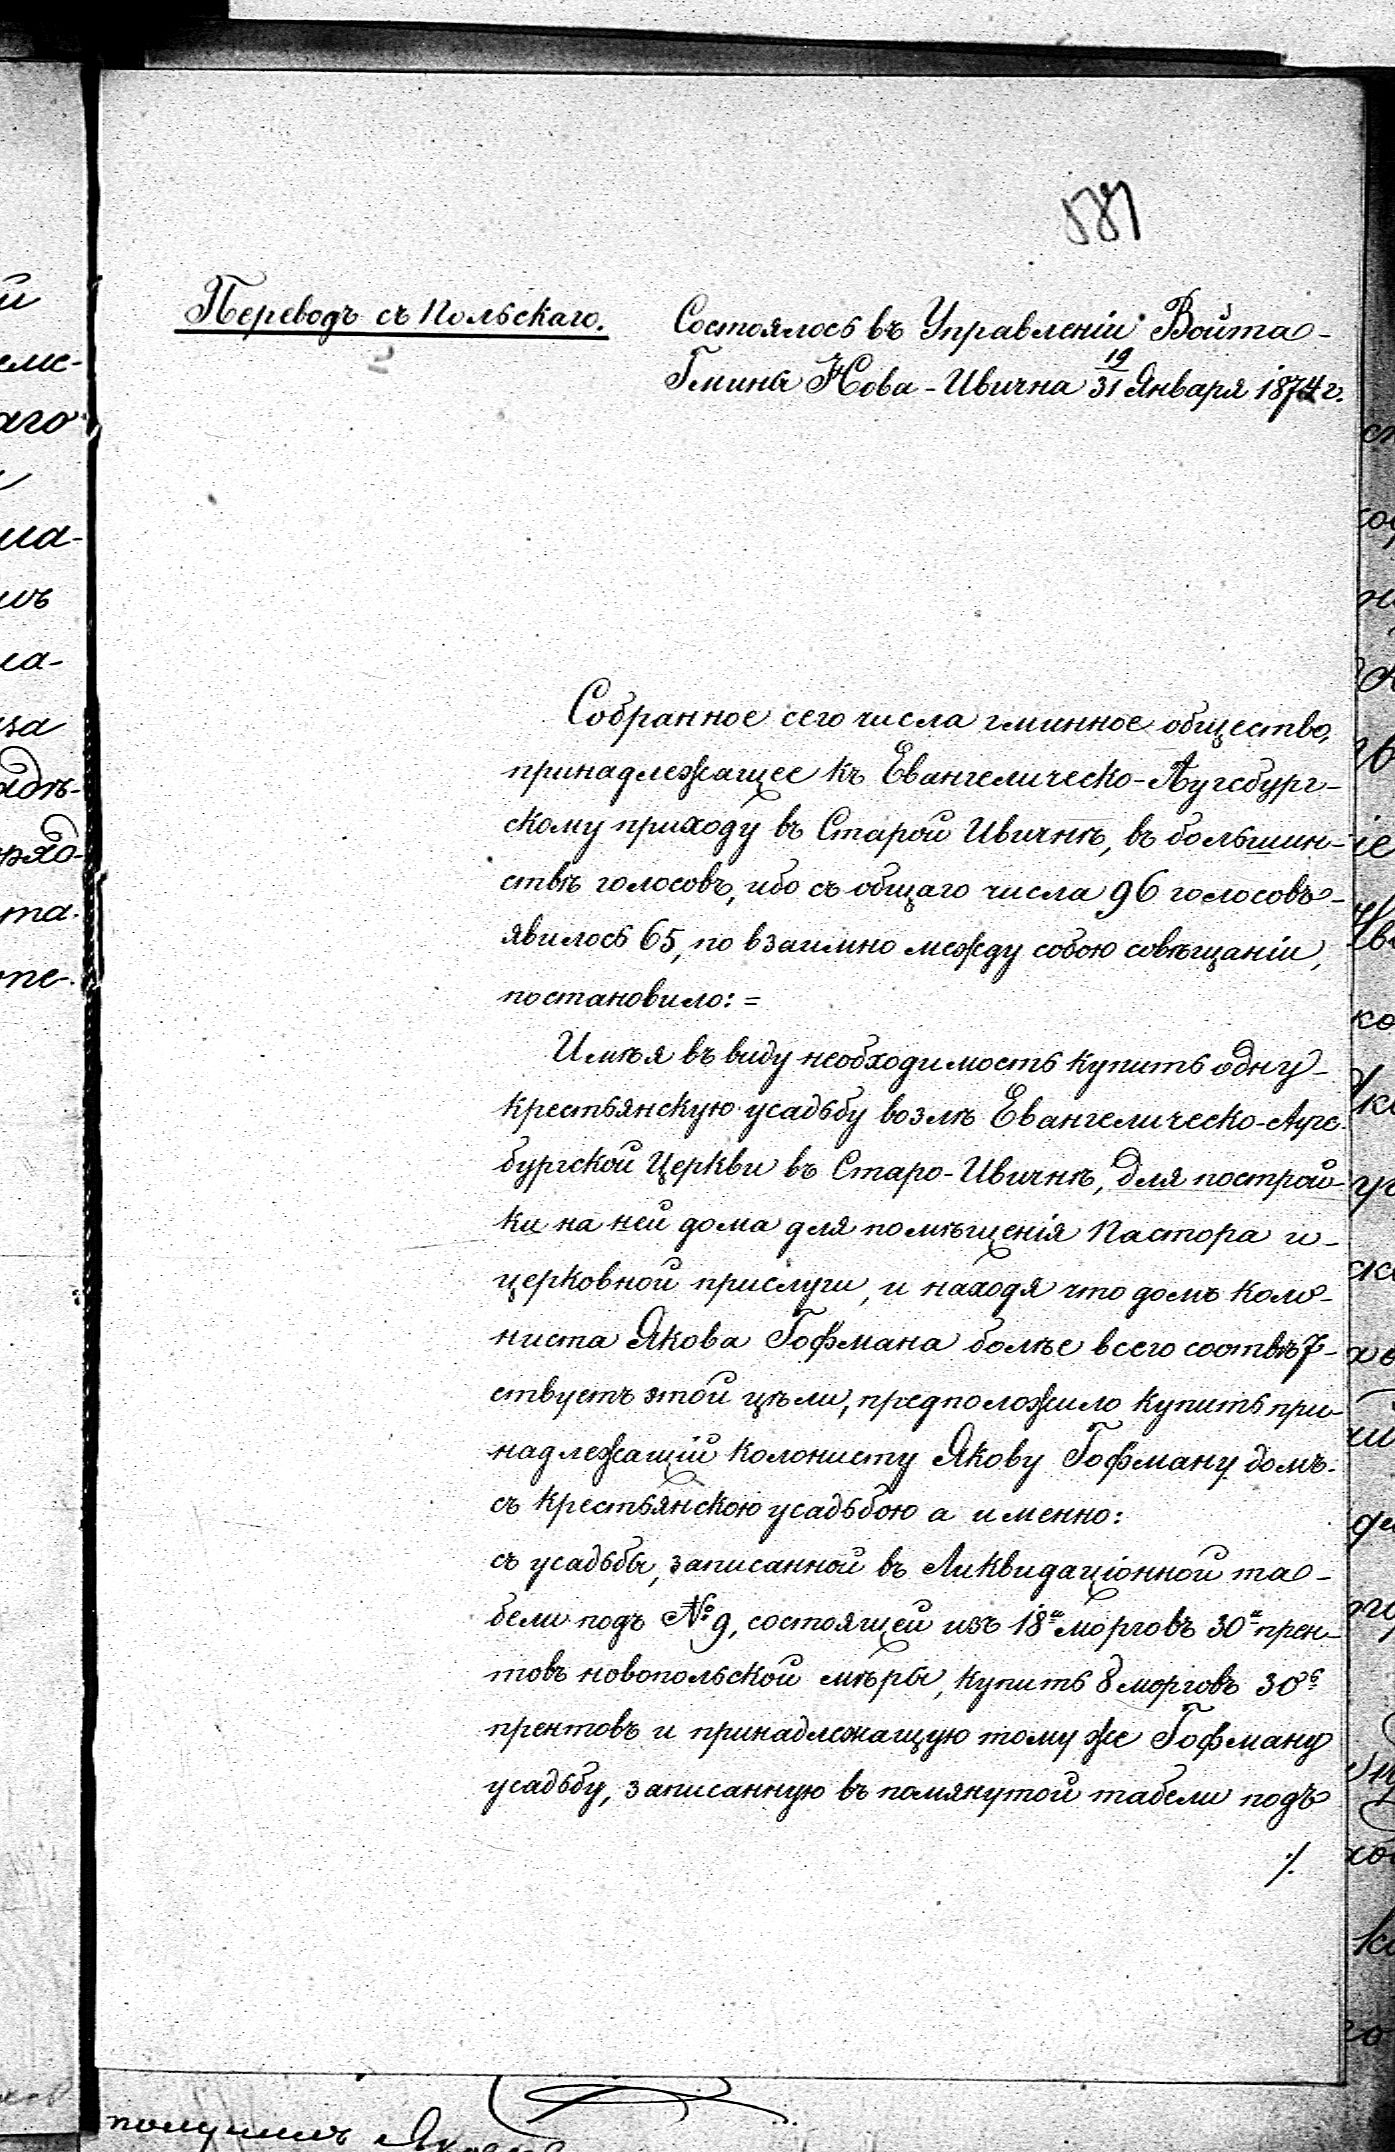 581
Переводъ съ Польскаго.
Состоялось въ Управленіи Войта
Гмины Нова-Ивична 19/31 Января 1874 г.
Собранное сего числа гминное общество,
принадлежащее къ Евангелическо-Аугсбург-
скому приходу въ Старой Ивичнѣ, въ большин-
ствѣ голосовъ, ибо съ общаго числа 96 голосовъ
явилось 65, по взаимно между собою совѣщаніи,
постановило: =
Имѣя въ виду необходимость купить одну
крестьянскую усадьбу возлѣ Евангелическо-Аугс-
бургской Церкви въ Старо-Ивичнѣ, для построй-
ки на ней дома для помѣщенія Пастора и
церковной прислуги, и находя что домъ коло-
ниста Якова Гофмана болѣе всего соотвѣт-
ствуетъ этой цѣли, предположило купить при-
надлежащій колонисту Якову Гофману домъ
съ крестьянскою усадьбою а именно:
съ усадьбы, записанной въ Ликвидаціонной та-
бели подъ № 9, состоящей изъ 18и морговъ 30и прен-
товъ новопольской мѣры, купить 8 морговъ 30ъ
прентовъ и принадлежащую тому же Гофману
усадьбу, записанную въ помянутой табели подъ
./.
получилъ